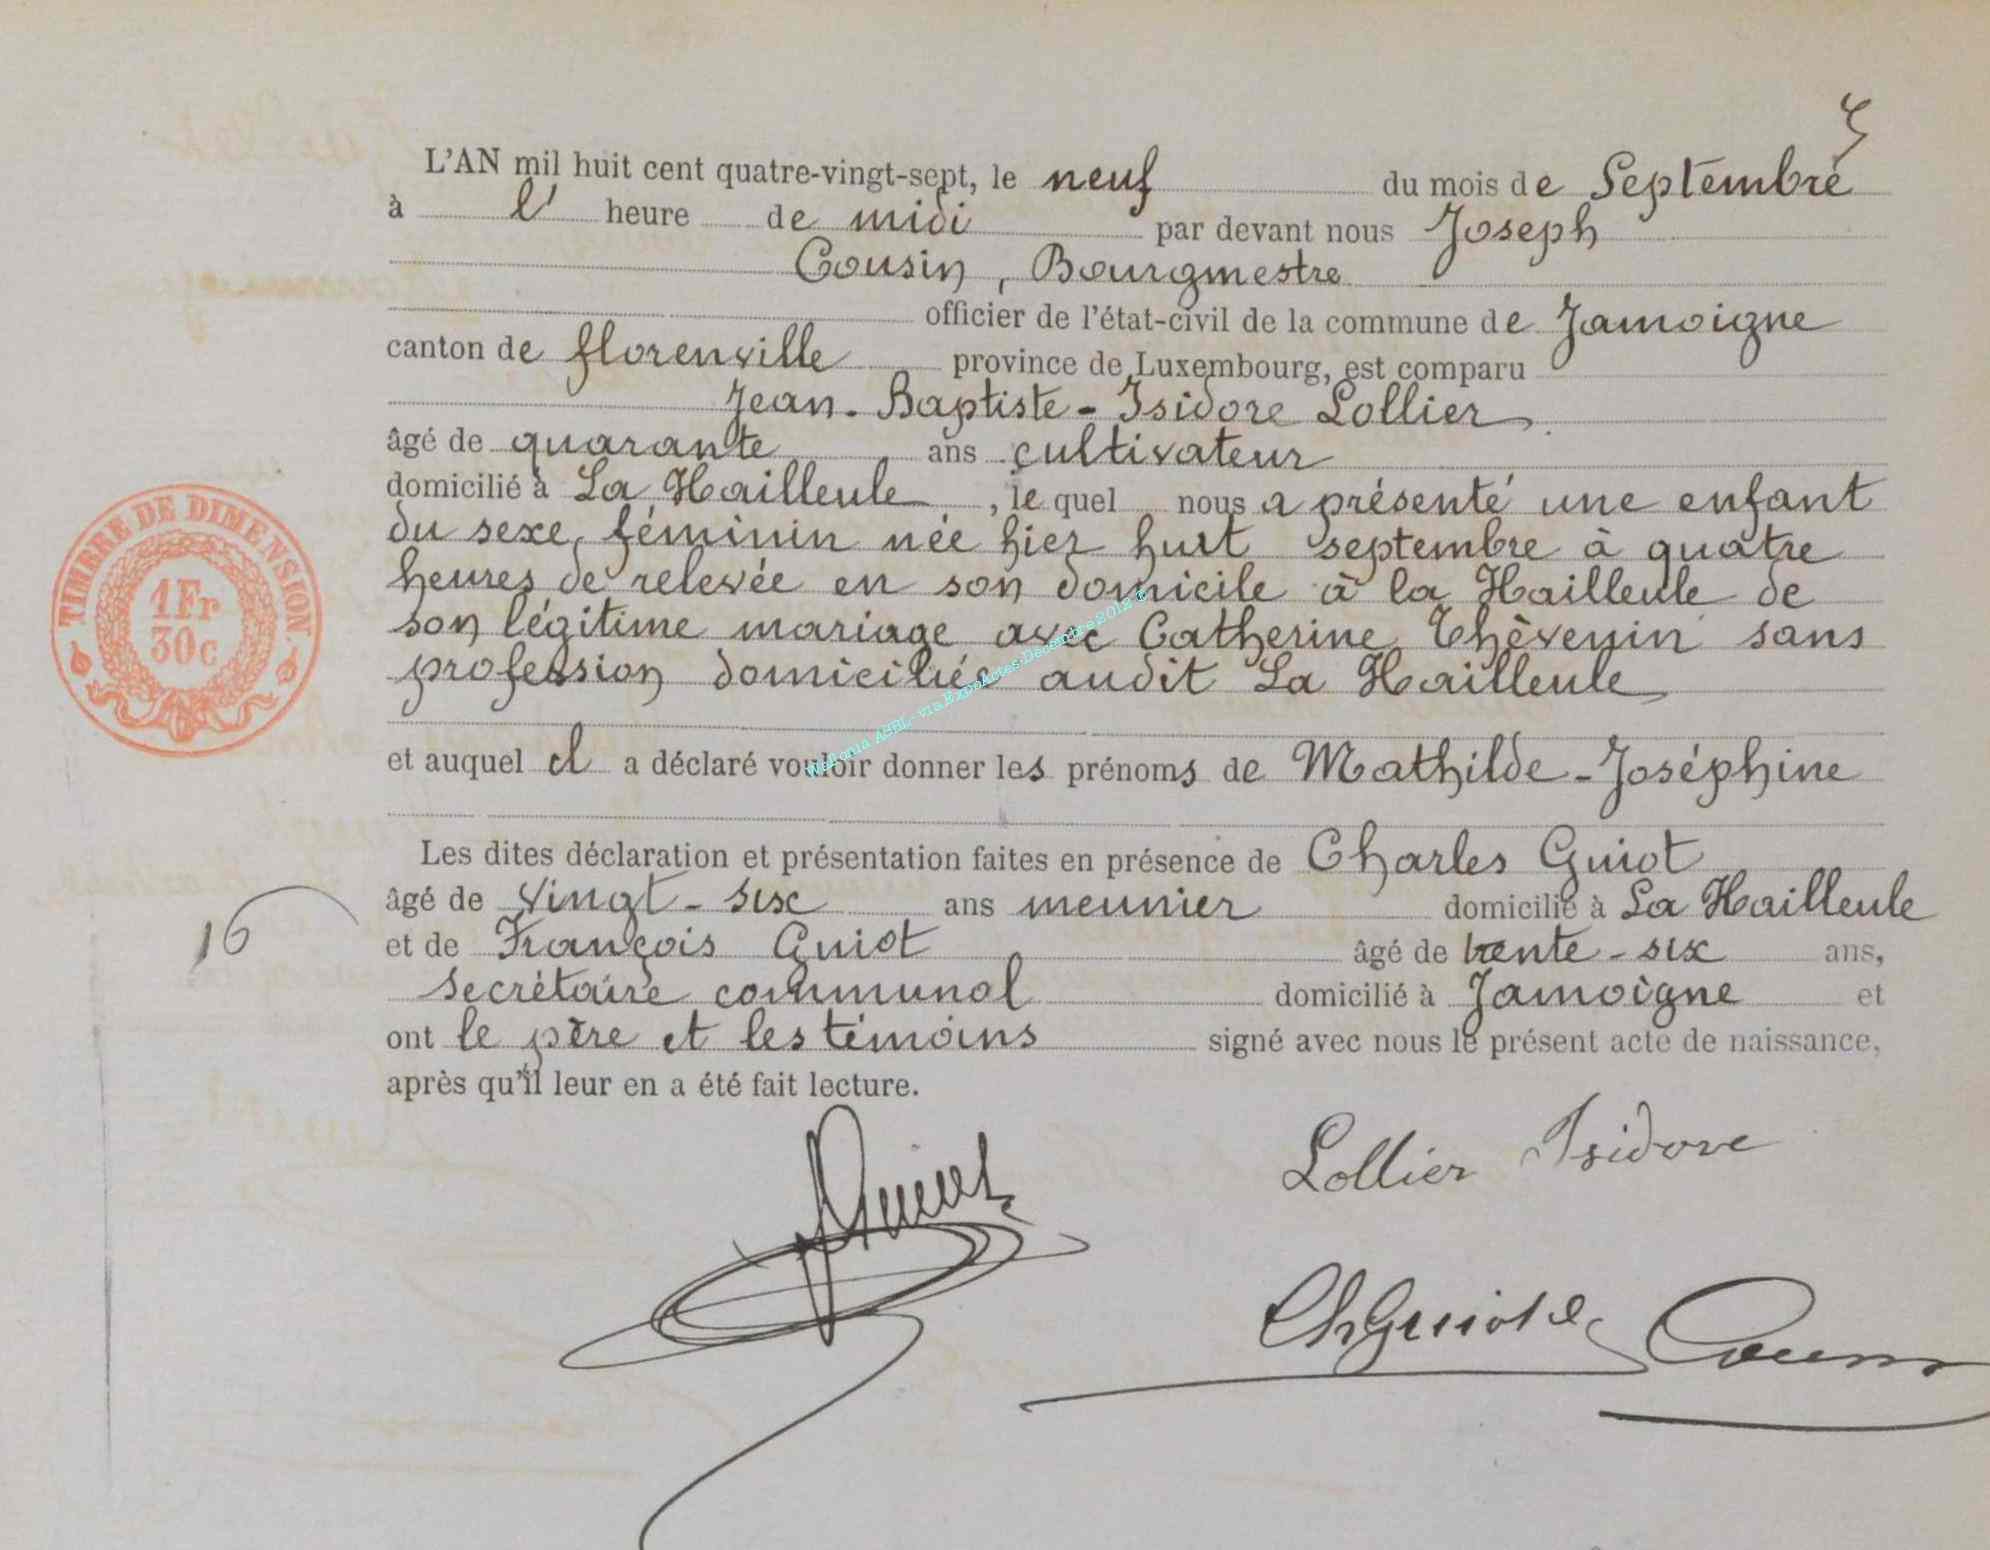 L'AN mil huit cent quatre-vingt-sept, le neuf du mois de Septembre
à l' heure de midi par devant nous Joseph
Cousin, Bourgmestre
officier de l'état-civil de la commune de Jamoigne
canton de florenville province de Luxembourg, est comparu
Jean-Baptiste-Isidore Lollier
âgé de quarante ans cultivateur
domicilié à La Hailleule, le quel nous a présenté une enfant
du sexe féminin née hier huit septembre à quatre
heures de relevée en son domicile à la Hailleule de
son légitime mariage avec Catherine Thèvenin sans
profession domiciliée audit La Hailleule
et auquel il a déclaré vouloir donner les prénoms de Mathilde-Joséphine
Les dites déclaration et présentation faites en présence de Charles Guiot
âgé de vingt-six ans meunier domicilié à La Hailleule
et de François Guiot âgé de trente-six ans,
secrétaire communal domicilié à Jamoigne et
ont le père et les témoins signé avec nous le présent acte de naissance,
après qu'il leur en a été fait lecture.
TIMBRE DE DIMENSION
1Fr
30c
16
Wallonia ASBL - via ExpoActes Décembre 2012
Lollier Isidore
Guiot
Ch Guiot
Cousin